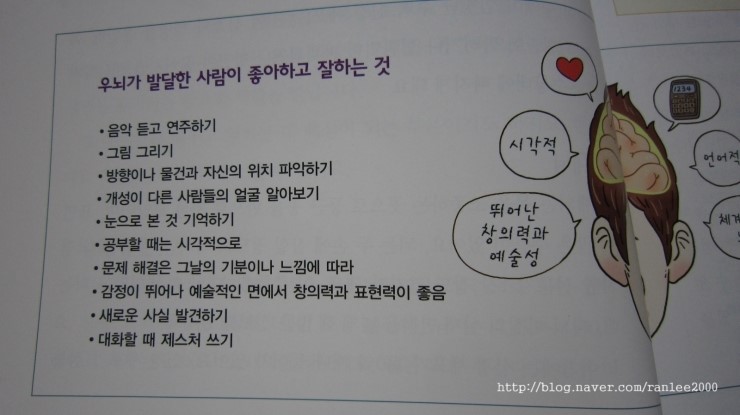 우뇌가 발달한 사람이 좋아하고 잘하는 것
• 음악 듣고 연주하기
• 그림 그리기
• 방향이나 물건과 자신의 위치 파악하기
• 개성이 다른 사람들의 얼굴 알아보기
• 눈으로 본 것 기억하기
• 공부할 때는 시각적으로
• 문제 해결은 그날의 기분이나 느낌에 따라
• 감정이 뛰어나 예술적인 면에서 창의력과 표현력이 좋음
• 새로운 사실 발견하기
• 대화할 때 제스처 쓰기
시각적
뛰어난
창의력과
예술성
1234
언어적
체계
http://blog.naver.com/ranlee2000